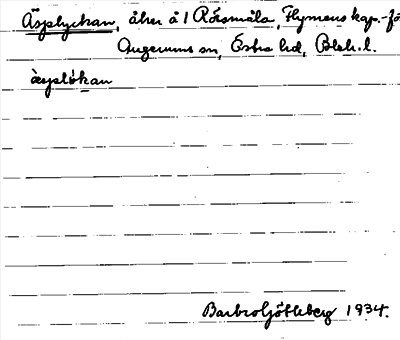 Äsplyckan, åker å 1 Rörsmåla, Flymens kap.-fö
Augerums sn, Östra hd, Blek. l.
æsplökan
Barbro Götleberg 1934.